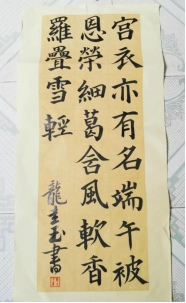 宫衣亦有名端午被
恩榮細葛含風軟香
羅疊雪輕
龍玉書